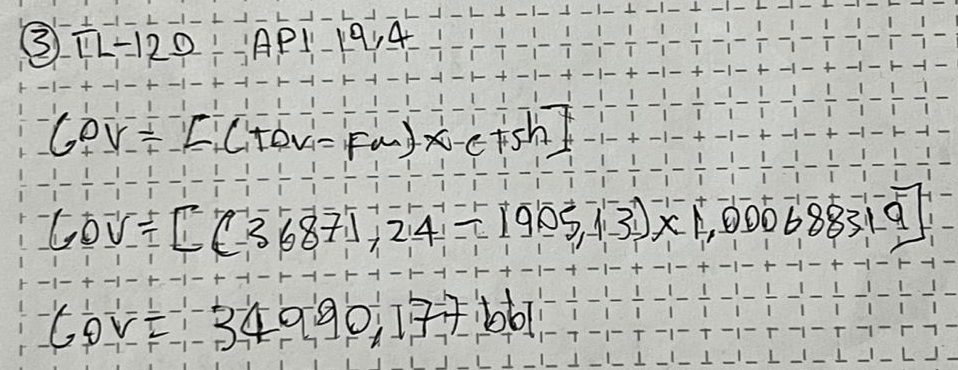 ③ TL-120 API 19,4
GOV = [(TOV - FW) x CTSh]
GOV = [(36871,24 - 1905,13) x 1,000688319]
GOV = 34990,177 bbl